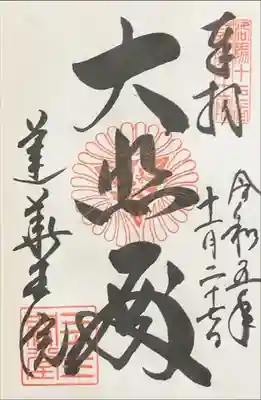 奉拝
令和五年
十一月二十七日
大悲殿
蓮華王院